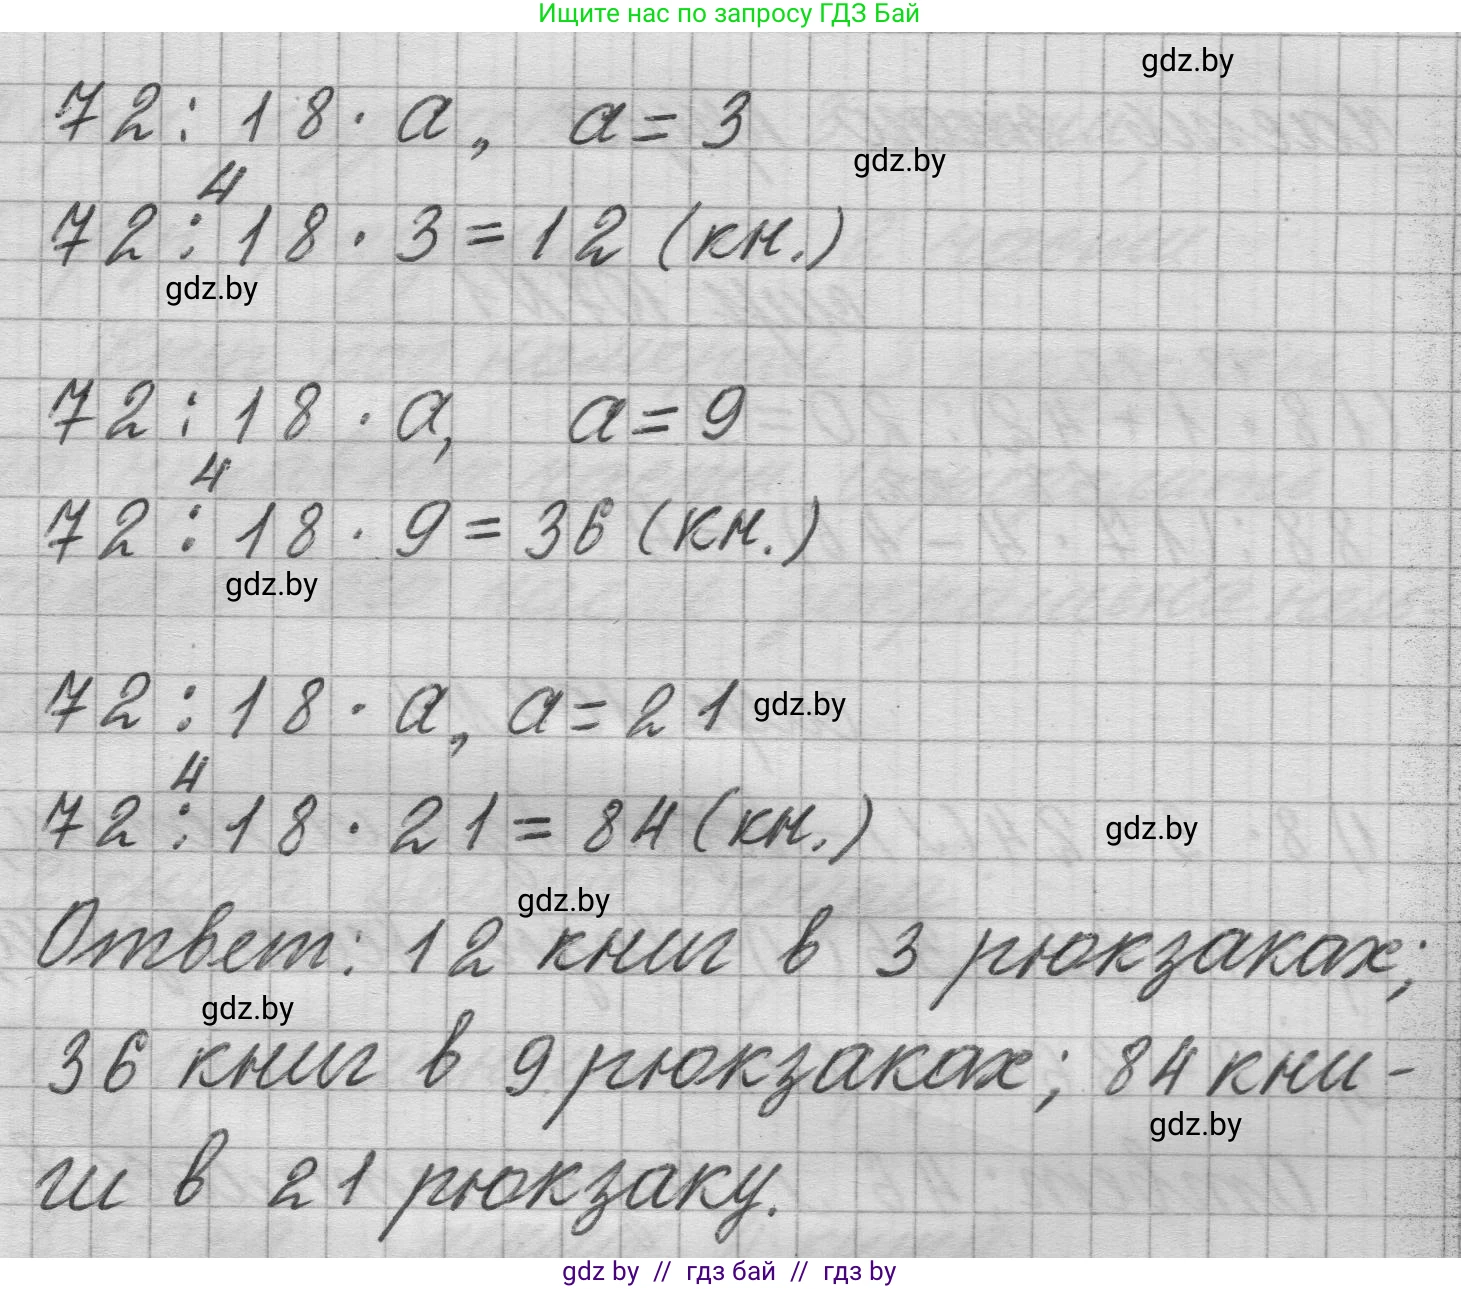 Ищите нас по запросу ГДЗ Бай
gdz.by
72 : 18 · а, а = 3
gdz.by
4
72 : 18 · 3 = 12 (кн.)
gdz.by
72 : 18 · а, а = 9
4
72 : 18 · 9 = 36 (кн.)
gdz.by
72 : 18 · а, а = 21
gdz.by
4
72 : 18 · 21 = 84 (кн.)
gdz.by
gdz.by
Ответ: 12 книг в 3 рюкзаках;
gdz.by
36 книг в 9 рюкзаках; 84 кни-
gdz.by
ги в 21 рюкзаку.
gdz by // гдз бай // гдз by